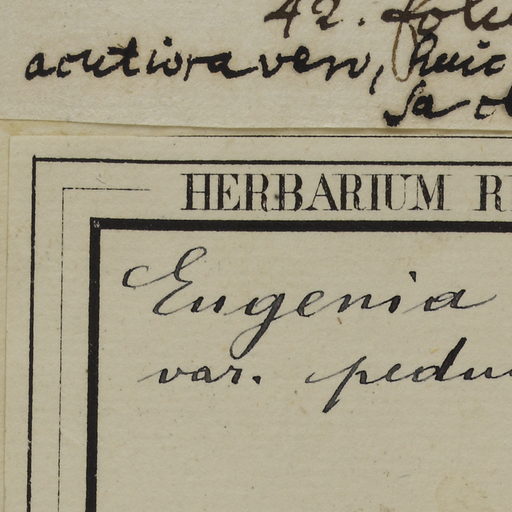 42. foli
acutiora vero, huic
HERBARIUM R
Eugenia
var. pedu